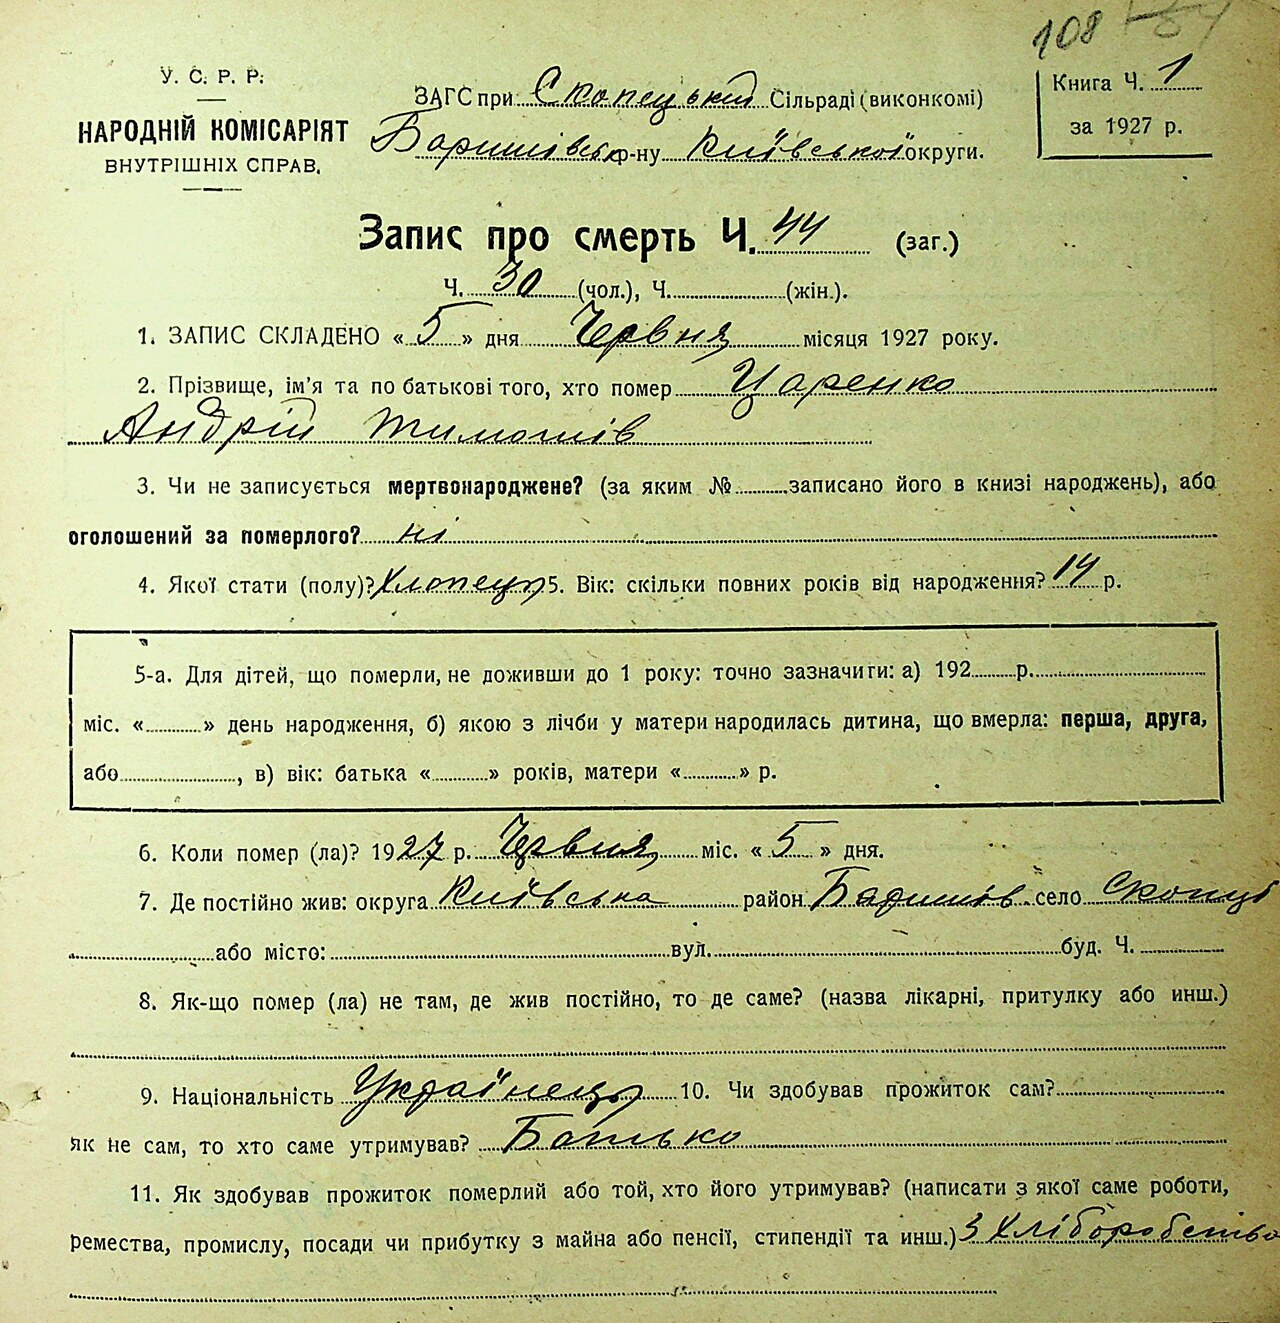 108
У. С. Р. Р.
НАРОДНІЙ КОМІСАРІЯТ
ВНУТРІШНІХ СПРАВ.
ЗАГС при Скопецький Сільраді (виконкомі)
Баришівськ р-ну Київської округи.
Книга Ч. 1
за 1927 р.
Запис про смерть Ч. 44 (заг.)
Ч. 30 (чол.), Ч. (жін.).
1. ЗАПИС СКЛАДЕНО « 5 » дня Червня місяця 1927 року.
2. Прізвище, ім'я та по батькові того, хто помер Царенко
Андрій Тимошів
3. Чи не записується мертвонароджене? (за яким № записано його в книзі народжень), або
оголошений за померлого? ні
4. Якої стати (полу)? Хлопець 5. Вік: скільки повних років від народження? 14 р.
5-а. Для дітей, що померли, не доживши до 1 року: точно зазначити: а) 192 р.
міс. « » день народження, б) якою з лічби у матери народилась дитина, що вмерла: перша, друга,
або , в) вік: батька « » років, матери « » р.
6. Коли помер (ла)? 1927 р. Червня міс. « 5 » дня.
7. Де постійно жив: округа Київська район Баришів. село Скопці
або місто: вул. буд. Ч.
8. Як-що помер (ла) не там, де жив постійно, то де саме? (назва лікарні, притулку або инш.)
9. Національність Українець 10. Чи здобував прожиток сам?
як не сам, то хто саме утримував? Батько
11. Як здобував прожиток померлий або той, хто його утримував? (написати з якої саме роботи,
ремества, промислу, посади чи прибутку з майна або пенсії, стипендії та инш.) З Хліборобства